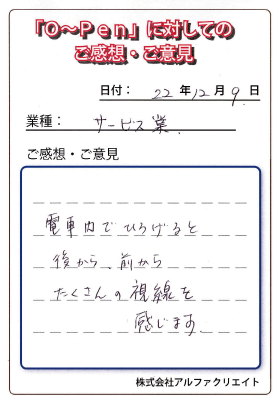 「O～Pen」に対しての
ご感想・ご意見
日付： 22 年 12 月 9 日
業種： サービス業
ご感想・ご意見
電車内でひろげると
後から、前から
たくさんの視線を
感じます
株式会社アルファクリエイト